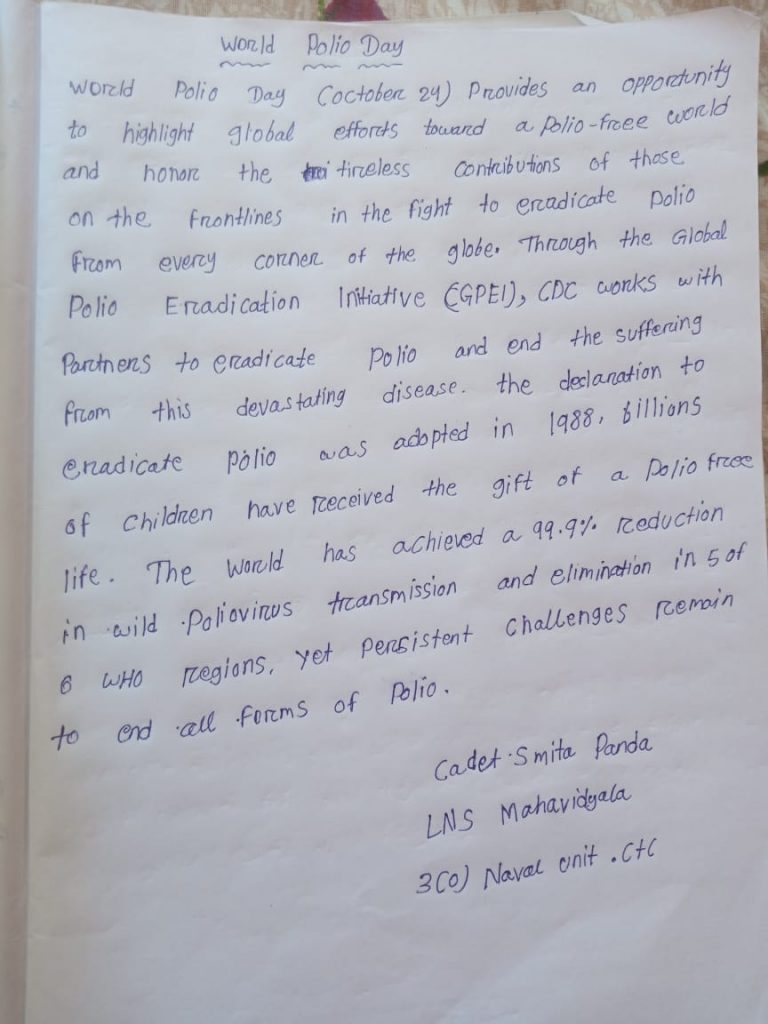 World Polio Day
World Polio Day (october 24) Provides an opportunity
to highlight global efforts toward a Polio-free world
and honor the tireless contributions of those
on the frontlines in the fight to eradicate Polio
from every corner of the globe. Through the Global
Polio Eradication Initiative (GPEI), CDC works with
Partners to eradicate Polio and end the suffering
from this devastating disease. the declaration to
eradicate polio was adopted in 1988, billions
of children have received the gift of a Polio free
life. The World has achieved a 99.9% reduction
in wild Poliovirus transmission and elimination in 5 of
6 WHO regions, yet persistent challenges remain
to end all forms of Polio.
Cadet Smita Panda
LNS Mahavidyala
3(O) Naval unit . CTC